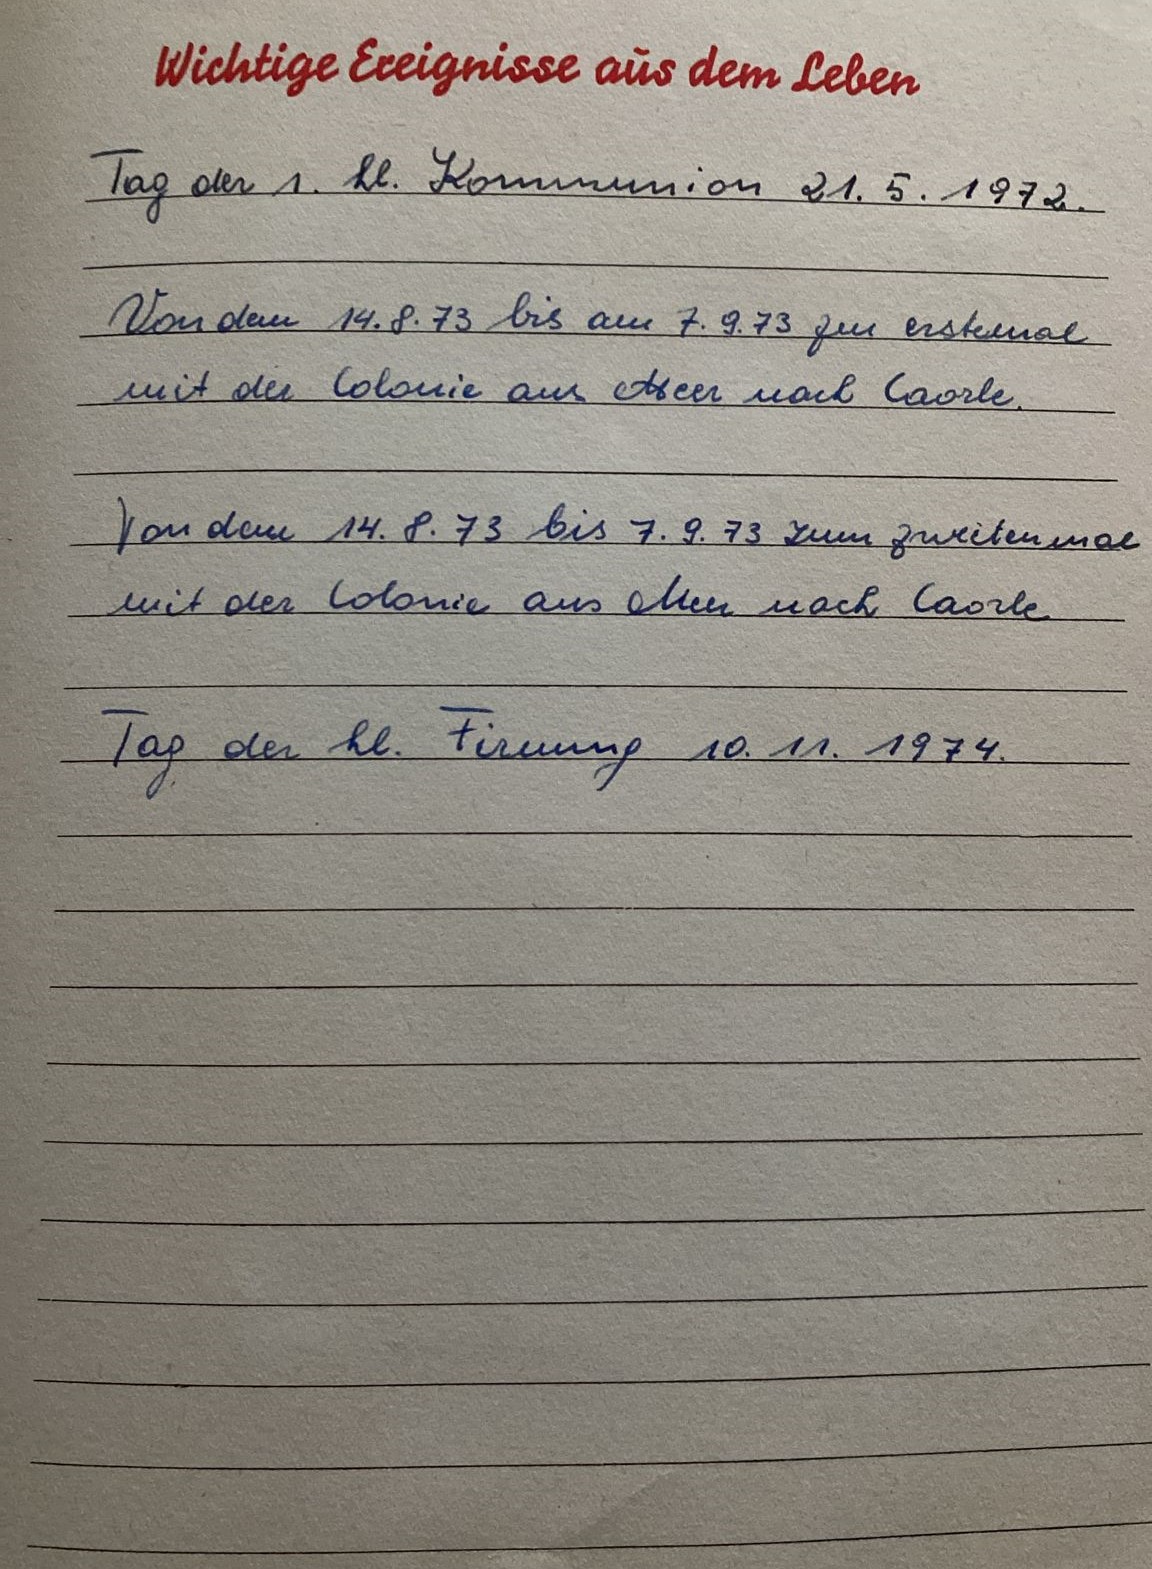 Wichtige Ereignisse aus dem Leben
Tag der 1. hl. Kommunion 21. 5. 1972.
Von dem 14. 8. 73 bis am 7. 9. 73 zum erstemal
mit der Colonie ans Meer nach Caorle.
Von dem 14. 8. 73 bis 7. 9. 73 zum zweitenmal
mit der Colonie ans Meer nach Caorle
Tag der hl. Firmung 10. 11. 1974.